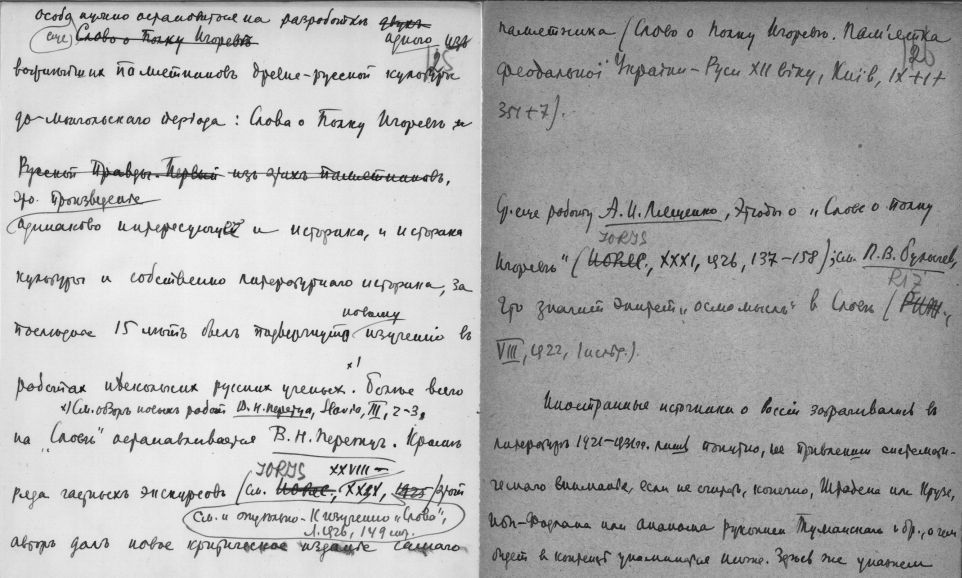 особо нужно остановиться на разработкѣ двухъ
еще Слово о Полку Игоревѣ одного изъ
25
важнѣйших памятниковъ древне-русской культуры
до-монгольскаго периода: Слова о Полку Игоревѣ и
Русской Правды. Первый изъ этихъ памятниковъ,
Это произведение
одинаково интересующее и историка, и историка
культуры и собственно литературнаго историка, за
последние 15 лѣтъ былъ подвергнуто новому изучению въ
работах нѣсколькихъ русских ученыхъ. x) Больше всего
x) См. обзоръ новыхъ работ В. Н. Перетца, Slavia, III, 2-3,
на "Словѣ" останавливается В. Н. Перетцъ. Кромѣ
JORJS XXVIII –
ряда частныхъ экскурсовъ (см. ИОРЯС, XXIX, 1925) этот
см. и отдельно - К изучению "Слова",
Л. 1926, 149 стр.
авторъ далъ новое критическое издание самаго
памятника (Слово о Полку Игоревім. Пам'ятка
26
феодальної України-Руси XII віку, Київ, IX+1+
351+7).
Ср. еще работу А. И. Лященко, Этюды о "Словѣ о полку
JORJS
Игоревѣ" (ИОРЯС, XXXI, 1926, 137-158); см. П. В. Булычев,
RIŽ
Что значит эпитет "осмомыслъ" в Словѣ (РИЖ,
VIII, 1922, 1 истор.).
Иностранные источники о России затрагивались въ
литературѣ 1921-1931 гг. лишь попутно, не привлекши системати-
ческаго внимания, если не считать, конечно, Штадена или Крузе,
Ибн-Фадлана или анонима рукописи Туманскаго и др., о чем
будет в контексте упоминаться ниже. Здѣсь же укажем